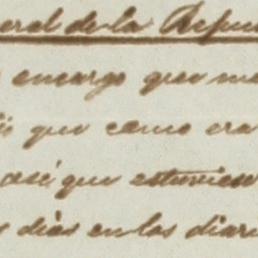 eral de la Repu
encargo que me
que como era
asi que estuvies
dias en los diari